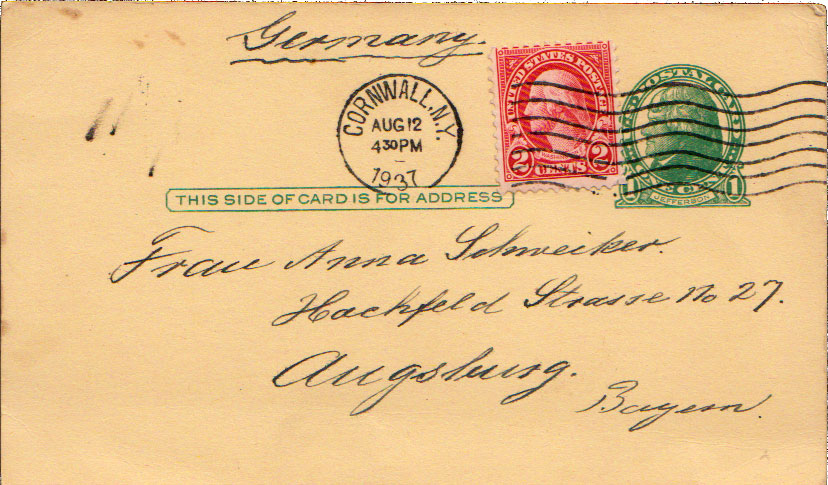 Germany.
CORNWALL, N.Y.
AUG 12
4 30 PM
1937
UNITED STATES POSTAGE
2 CENTS 2
POSTAL CARD
1 1
JEFFERSON
THIS SIDE OF CARD IS FOR ADDRESS
Frau Anna Schweiker.
Hochfeld Strasse No 27.
Augsburg.
Bayern.